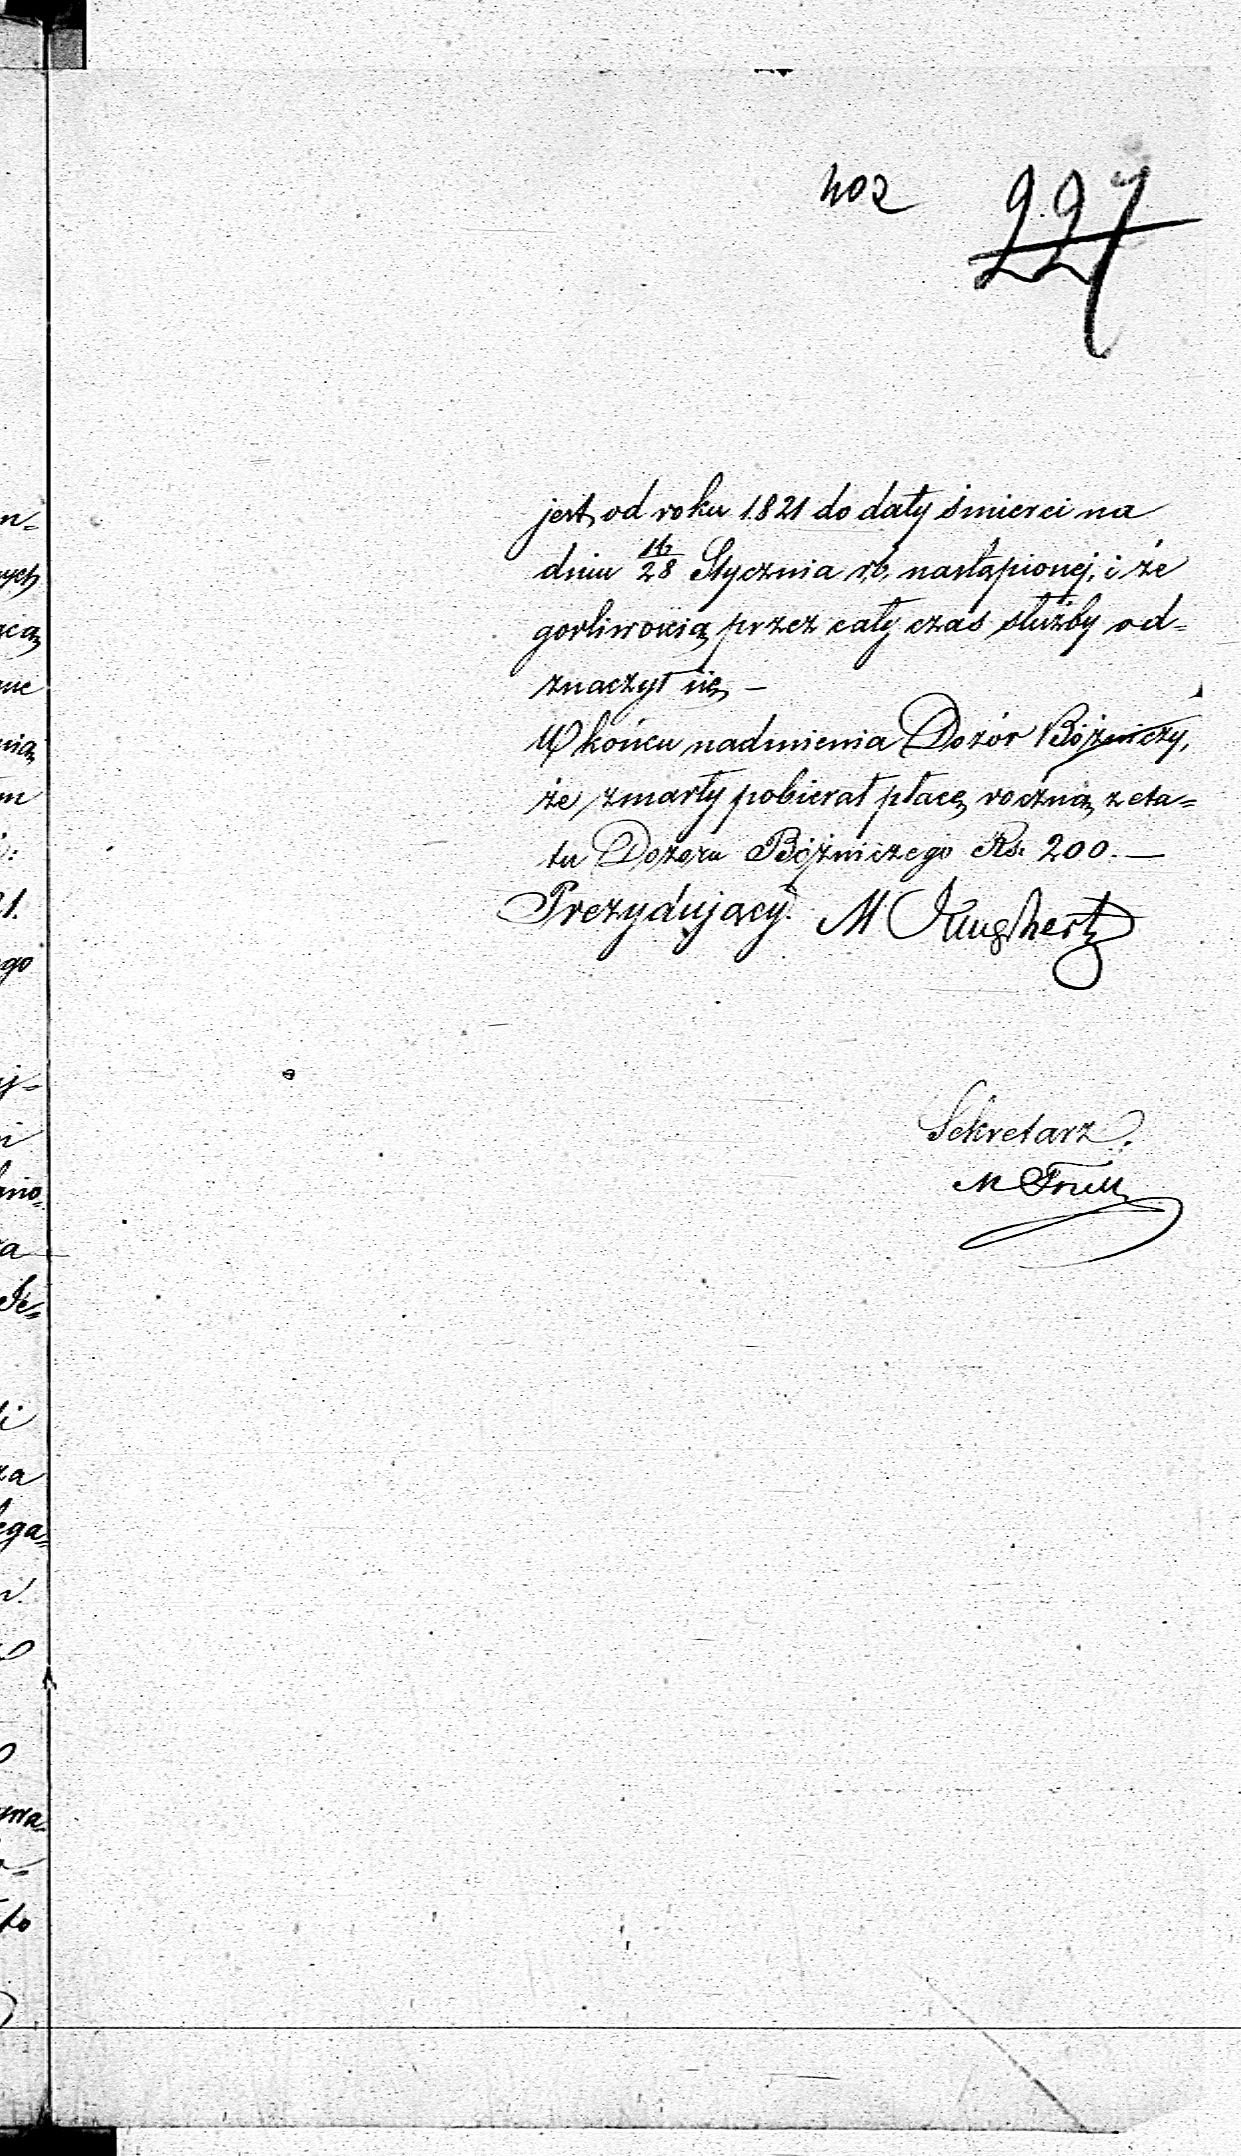 402 227
jest od roku 1821 do daty śmierci na
dniu 16/28 Stycznia r.b. nastąpionej, i że
gorliwością przez cały czas służby od=
znaczył się –
W końcu nadmienia Dozór Bóżniczy,
że zmarły pobierał płacę roczną z eta=
tu Dozoru Bóżniczego Rs. 200. —
Prezydujący. M
Sekretarz.
M